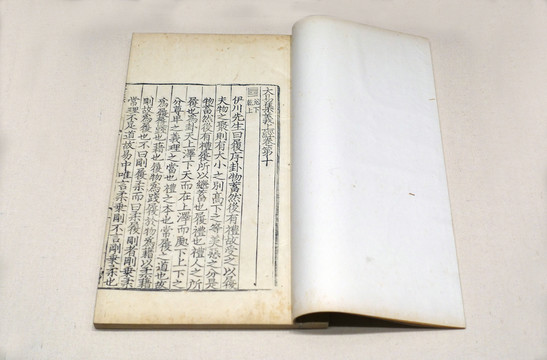 大易集義上經卷第十
兌下
乾上
伊川先生曰履序卦物畜然後有禮故受之以履
夫物之聚則有大小之別高下之等美惡之分是
物畜然後有禮履所以繼畜也履禮也禮人之所
履也為卦天上澤下天而在上澤而處下上下之
分尊卑之義理之當也禮之本也常履之道也故
為履履踐也藉也履物為踐履於物為藉以柔藉
剛故為履也不曰剛履柔而曰柔履剛者剛乘柔
常理不足道故易中唯言柔乘剛不言剛乘柔也